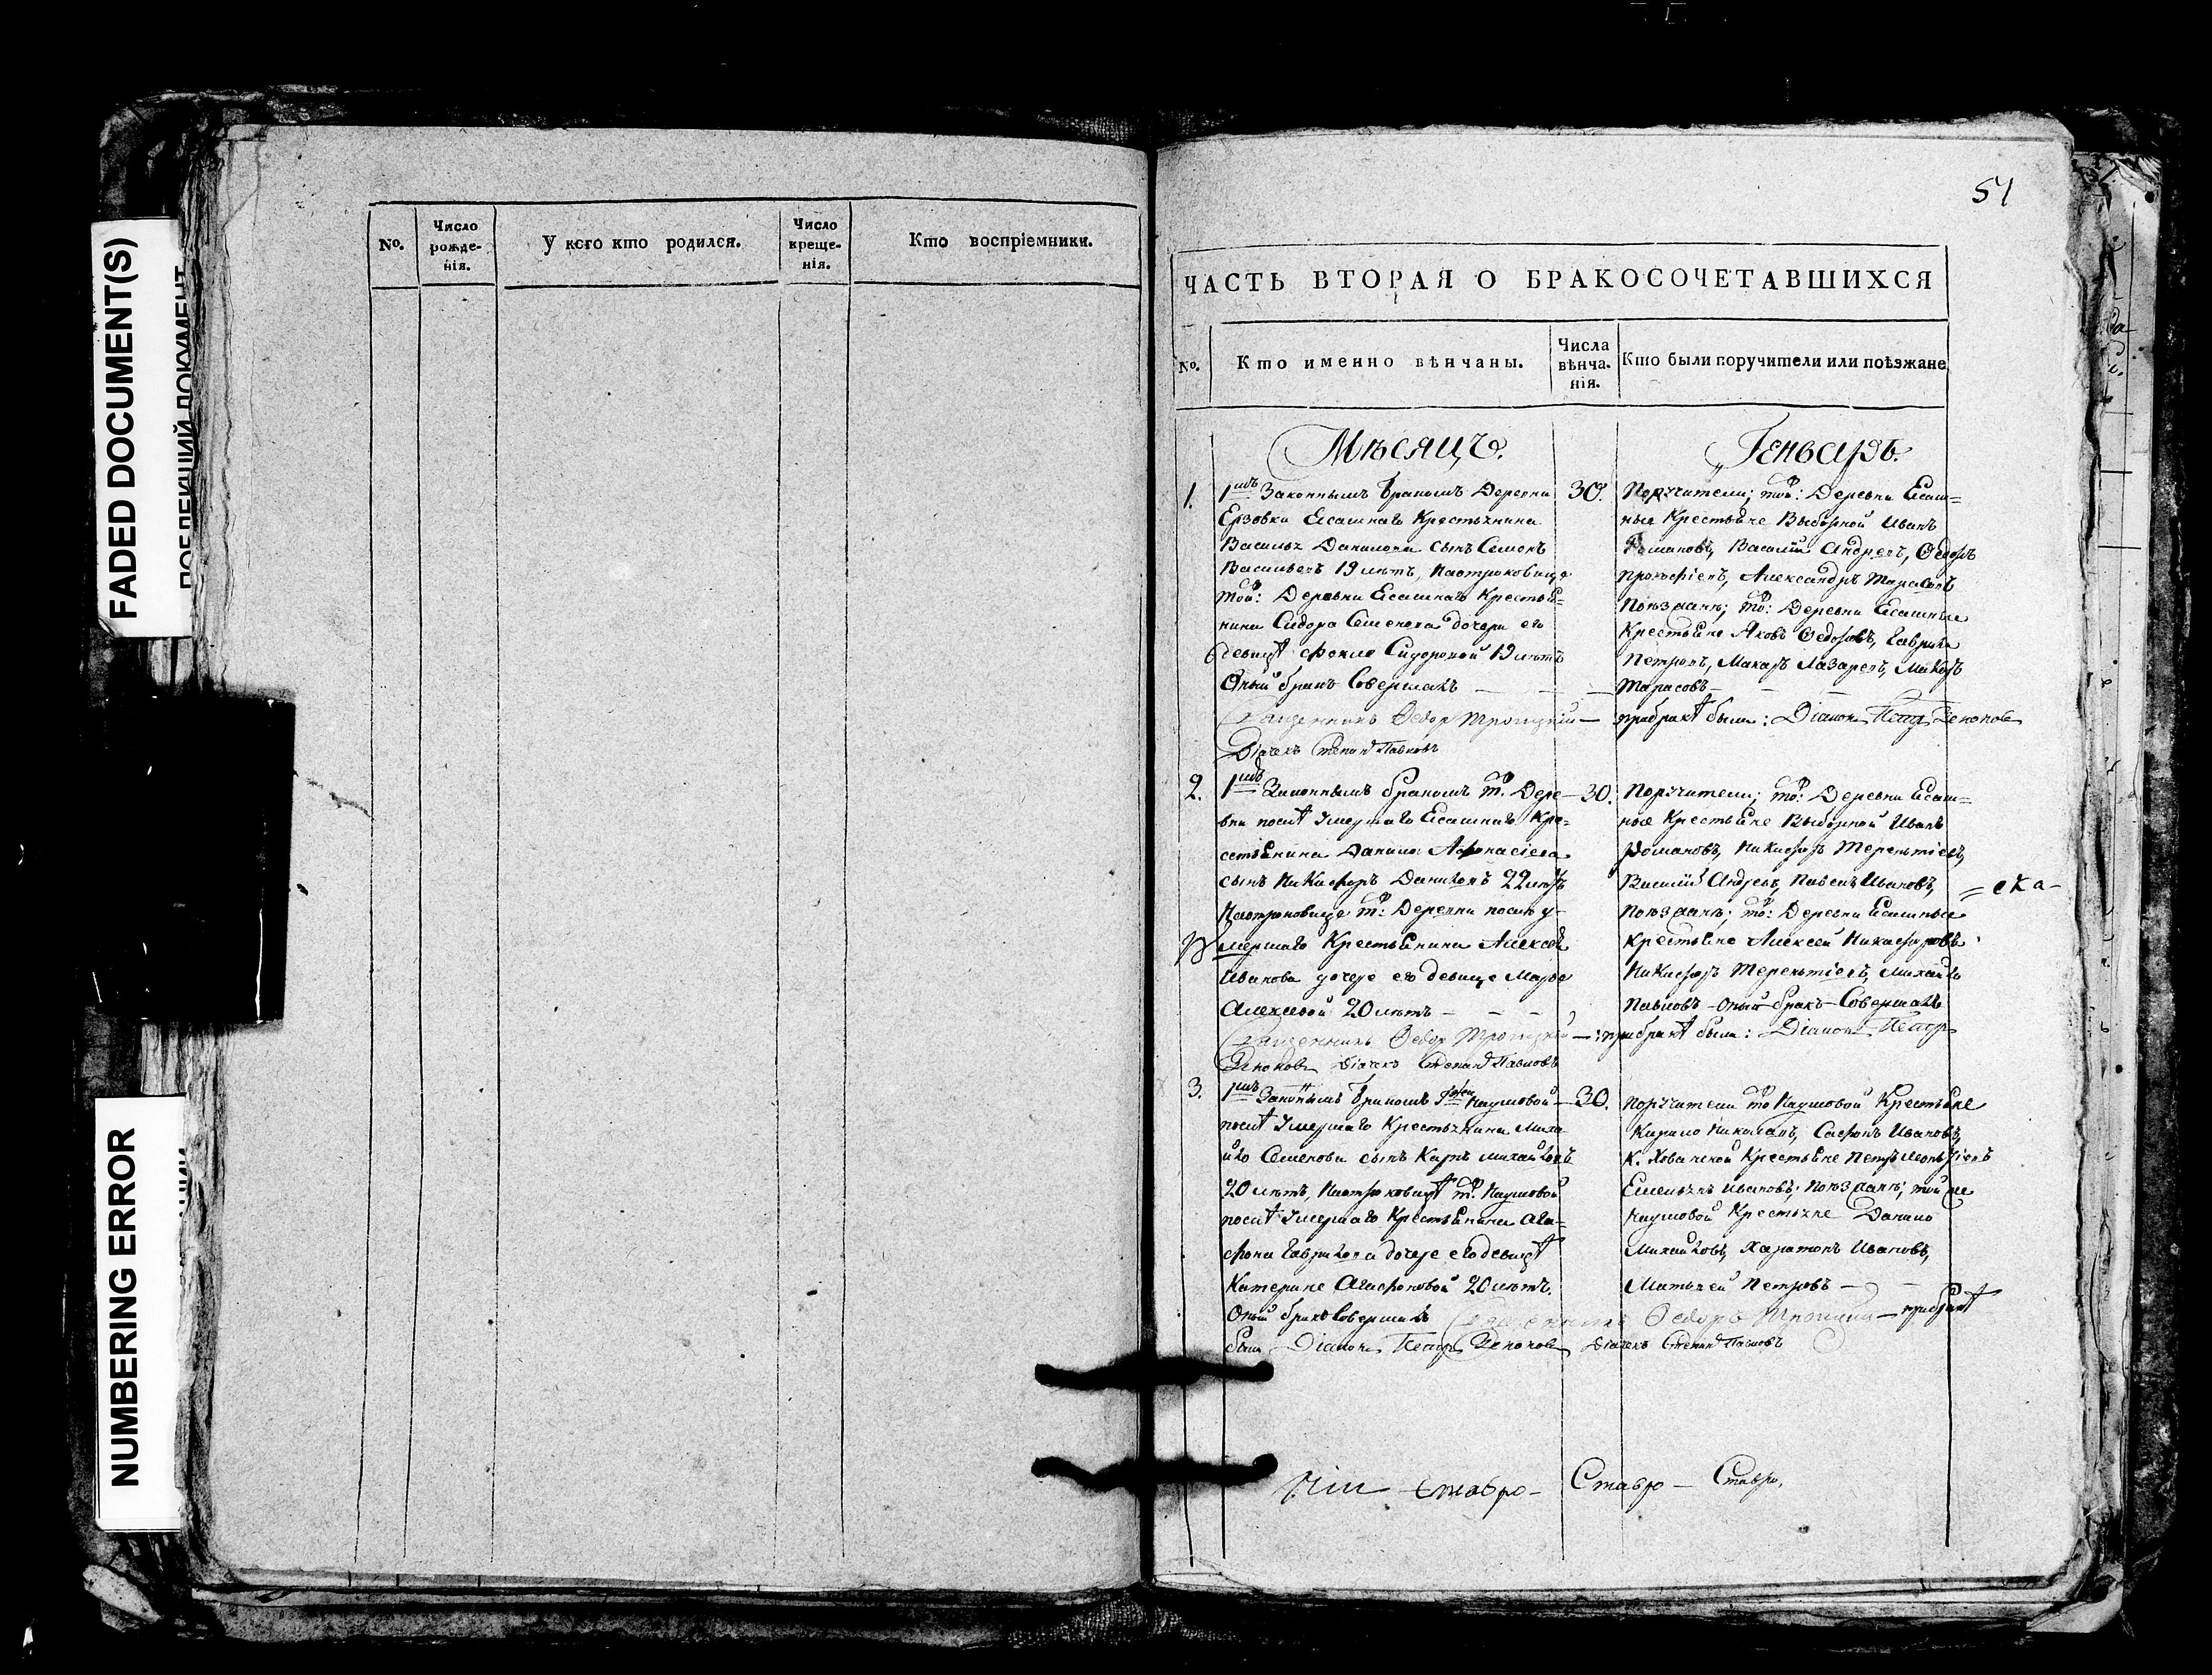 FADED DOCUMENT(S)
NUMBERING ERROR
No.
Число рожденія.
У кого кто родился.
Число крещенія.
Кто воспріемники.
51
ЧАСТЬ ВТОРАЯ О БРАКОСОЧЕТАВШИХСЯ
No.
Кто именно вѣнчаны.
Числа вѣнчанія.
Кто были поручители или поѣзжане
Мѣсяцъ.
Генварь.
1.
1мъ Законнымъ бракомъ Деревни
Ерзовки Ясашнаго Крестьянина
Василья Данилова сынъ Семенъ
Васильевъ 19 лѣтъ, Наотроковице
той: Деревни Ясашнаго Крестья=
нина Сидора Семенова дочери его
девицѣ Фокле Сидоровой 19 лѣтъ
Оный бракъ Совершалъ
Священникъ Ѳедор Троицкій
Дiачекъ Степанъ Павловъ
30.
Порутчители; той: Деревни Ясаш=
ныя Крестьяне Выборной Иванъ
Романовъ, Василий Андреевъ, Ѳедоръ
Прокофіевъ, Александръ Тарасовъ
Поѣздане; той: Деревни Ясашныя
Крестьяне Яковъ Ѳедоровъ, Гаврила
Петровъ, Макаръ Лазаревъ,
Тарасовъ
прибракѣ были: Діаконъ Петръ
2.
1мъ Законнымъ бракомъ т: Дере
вни послѣ Умершаго Ясашнаго Кре=
стьянина Данила Афонасіева
сынъ Никифоръ Даниловъ 22 лѣтъ
Наотроковице т: Деревни послѣ у=
мершаго Крестьянина Алексея
Иванова дочере его девице Марье
Алексеевой 20 лѣтъ
Священникъ Ѳедор Троицкій
Дiачекъ Степанъ Павловъ
30.
Порутчители; той: Деревни Ясаш=
ные Крестьяне Выборной Иванъ
Романовъ, Никифоръ Терентіевъ,
Василій Андреевъ, Павелъ Ивановъ,
Поѣздане; той: Деревни Ясашные
Крестьяне Алексей Никифоровъ
Никифоръ Терентіевъ, Михайло
Павловъ Оный бракъ Совершалъ
прибракѣ были: Діаконъ Петръ
= ска-
3.
1мъ Законнымъ бракомъ Наумовой
послѣ Умершаго Крестьянина Миха
йло Семенова сынъ Карпъ Михайловъ
20 лѣтъ, Наотроковицѣ т: Наумовой
послѣ Умершаго Крестьянина Ага=
фона Гаврилова дочере его девицѣ
Катерине Агафоновой 20 лѣтъ.
Оный бракъ Совершалъ Священникъ Ѳедоръ Троицкій прибракѣ
были Діаконъ Петръ Дiачекъ Степанъ Павловъ
30.
Порутчители той Наумовой Крестьяне
Кирило Николаевъ, Сафонъ Ивановъ,
К. Хованской Крестьяне Петръ
Емельянъ Ивановъ; Поѣздане; той же
Наумовой Крестьяне Данило
Михайловъ, Харитонъ Ивановъ,
Матвей Петровъ
Ставро- Ставро- Ставро.